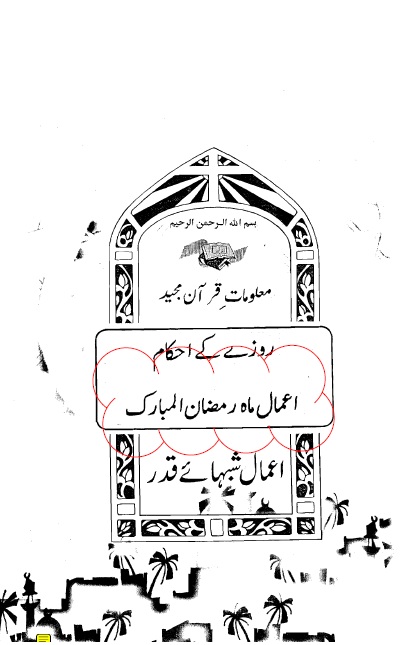 بسم الله الرحمن الرحيم
معلومات قرآن مجید
روزے کے احکام
اعمال ماہ رمضان المبارک
اعمال شبہائے قدر